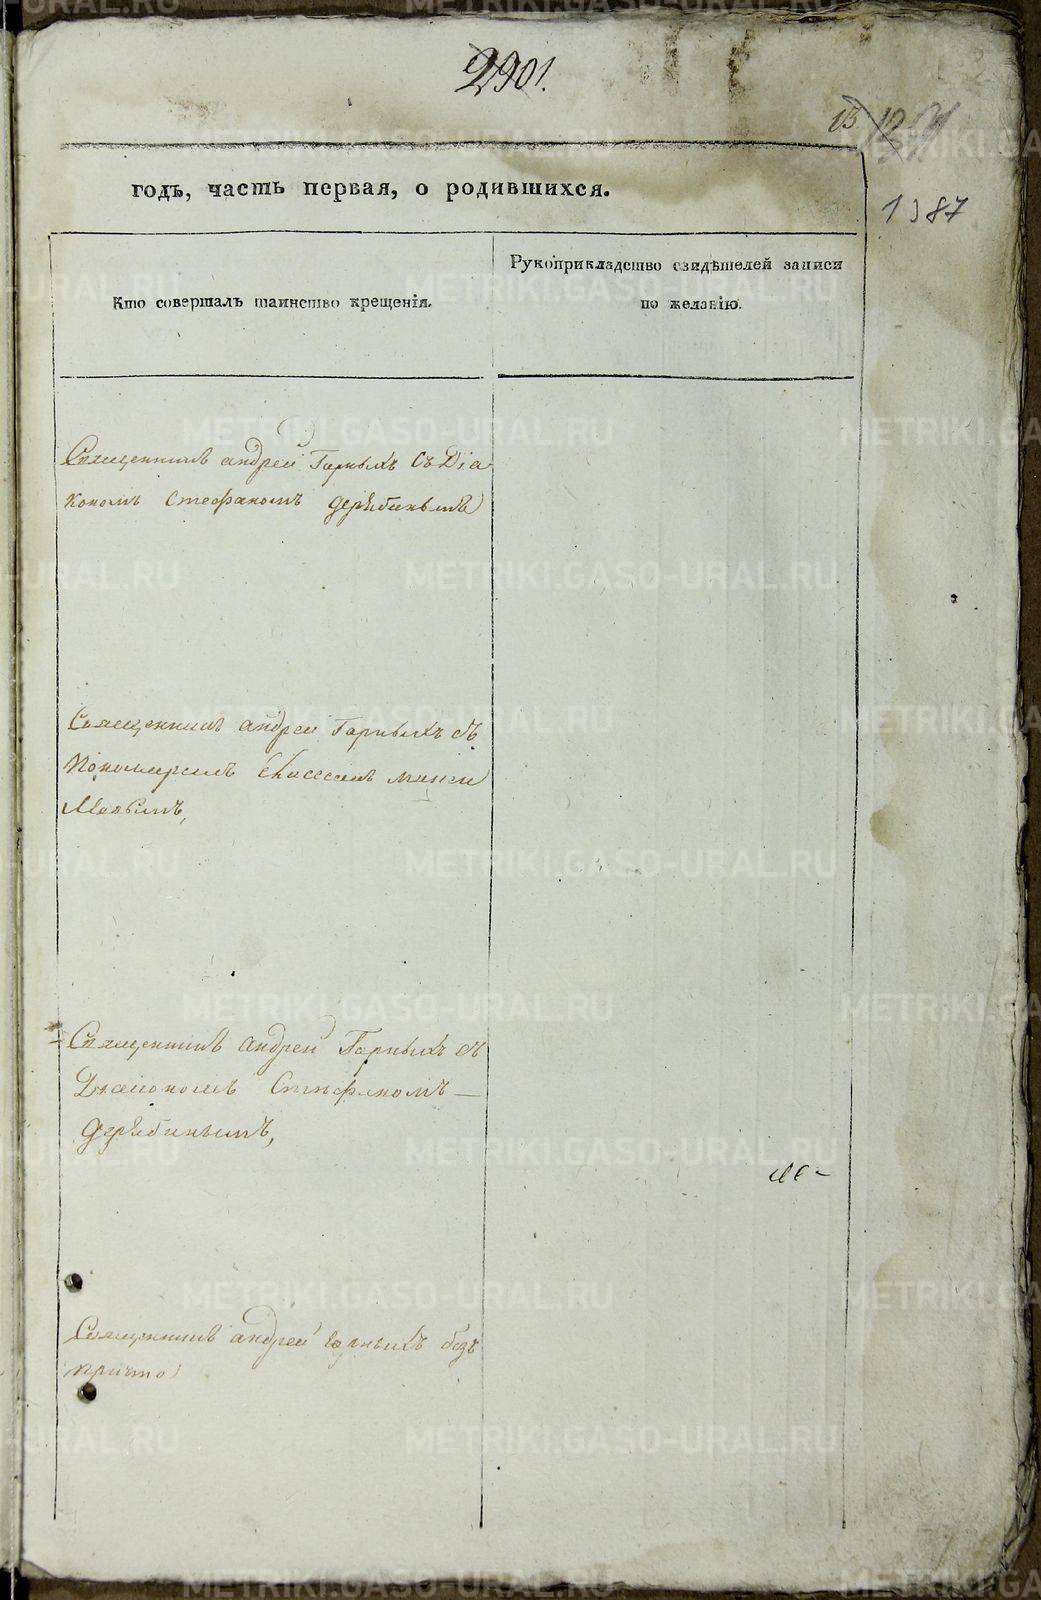 2901.
13
годъ, часть первая, о родившихся.
1387
Кто совершалъ таинство крещенія.
Рукоприкладство свидѣтелей записи
по желанію.
Священникъ андрей Горныхъ съ Діа
кономъ Стефаномъ Дерябинымъ
Священникъ андрей Горныхъ съ
Пономаремъ
Священникъ андрей Горныхъ съ
Діакономъ Стефаномъ
Дерябинымъ,
Священникъ андрей Горныхъ безъ
причта
METRIKI.GASO-URAL.RU